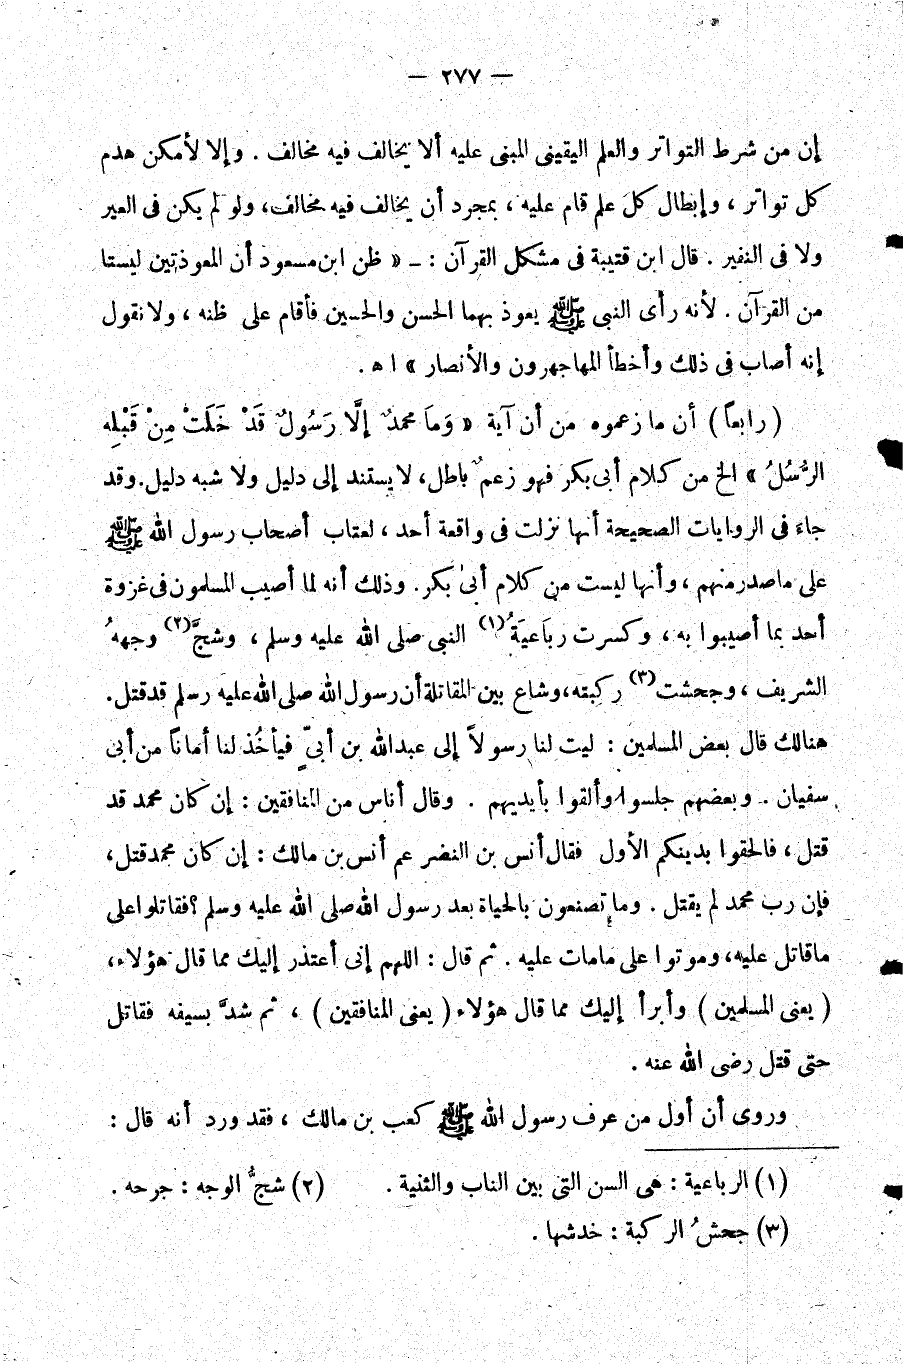 — ٢٧٧ —
إن من شرط التواتر والعلم اليقينى المبنى عليه ألا يخالف فيه مخالف . وإلا لأمكن هدم
كل تواتر ، وإبطال كل علم قام عليه ، بمجرد أن يخالف فيه مخالف، ولو لم يكن فى العير
ولا فى النفير . قال ابن قتيبة فى مشكل القرآن : ـ « ظن ابن مسعود أن المعوذتين ليستا
من القرآن . لأنه رأى النبى ﷺ يعوذ بهما الحسن والحسين فأقام على ظنه ، ولا نقول
إنه أصاب فى ذلك وأخطأ المهاجرون والأنصار » ا ه .
( رابعاً ) أن ما زعموه من أن آية « وَمَا محمدٌ إلَّا رَسُولٌ قَدْ خَلَتْ مِنْ قَبْلِه
الرُّسُلُ » الخ من كلام أبى بكر فهو زعمٌ باطل، لا يستند إلى دليل ولا شبه دليل. وقد
جاءَ فى الروايات الصحيحة أنها نزلت فى واقعة أحد ، لعتاب أصحاب رسول الله ﷺ
على ما صدر منهم ، وأنها ليست من كلام أبى بكر . وذلك أنه لما أصيب المسلمون فى غزوة
أحد بما أصيبوا به ، وكسرت رباعيَةُ(١) النبى صلى الله عليه وسلم ، وشجَّ(٢) وجههُ
الشريف ، وجحشت(٣) ركبته، وشاع بين المقاتلة أن رسول الله صلى الله عليه وسلم قد قتل .
هنالك قال بعض المسلمين : ليت لنا رسولاً إلى عبدالله بن أبىّ فيأخُذ لنا أماناً من أبى
سفيان . وبعضهم جلسوا وألقوا بأيديهم . وقال أناس من المنافقين : إن كان محمد قد
قتل ، فالحقوا بدينكم الأول فقال أنس بن النضر عم أنس بن مالك : إن كان محمد قتل ،
فإن رب محمد لم يقتل . وما تصنعون بالحياة بعد رسول الله صلى الله عليه وسلم ؟ فقاتلوا على
ما قاتل عليه، وموتوا على ما مات عليه . ثم قال : اللهم إنى أعتذر إليك مما قال هؤلاء ،
( يعنى المسلمين ) وأبرأ إليك مما قال هؤلاء ( يعنى المنافقين ) ، ثم شدَّ بسيفه فقاتل
حتى قتل رضى الله عنه .
وروى أن أول من عرف رسول الله ﷺ كعب بن مالك ، فقد ورد أنه قال :
(١) الرباعية : هى السن التى بين الناب والثنية . (٢) شجُّ الوجه : جرحه .
(٣) جحشُ الركبة : خدشها .